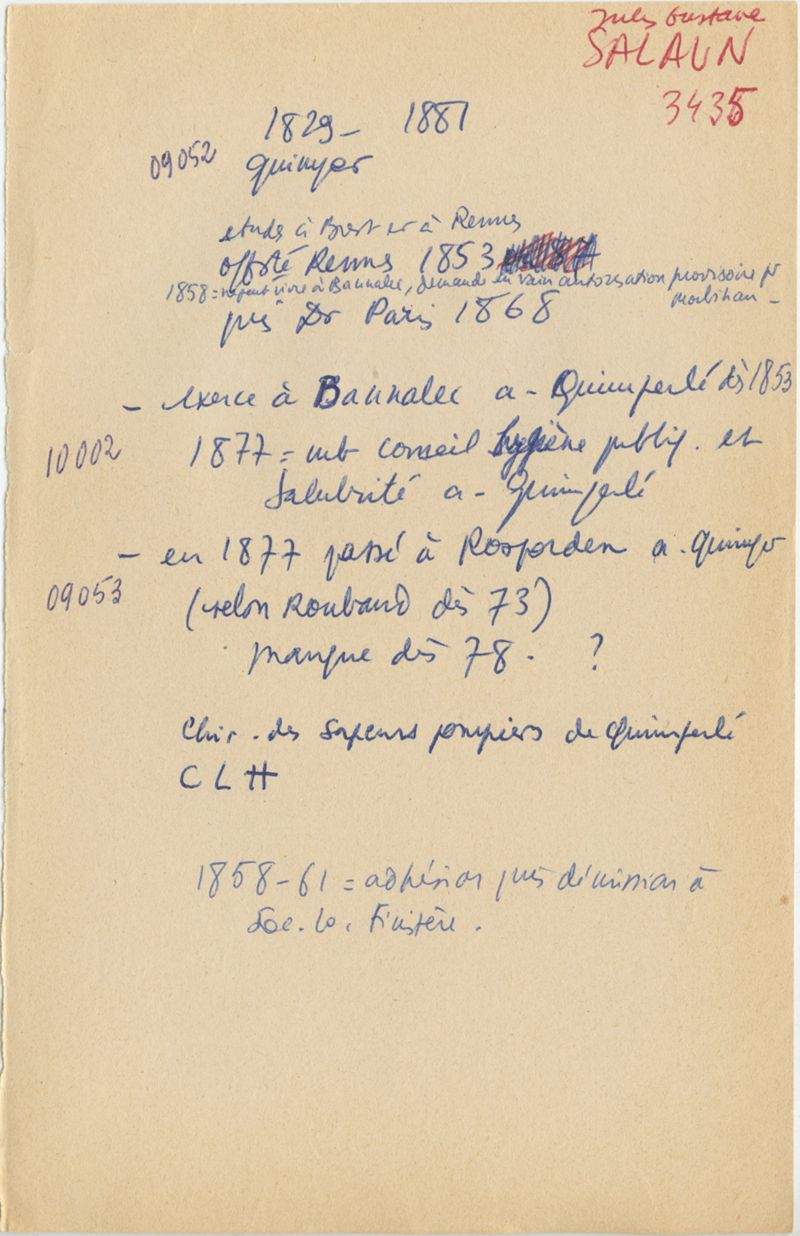 Jules Gustave
SALAUN
3435
1829 - 1881
09052 Quimper
etudes à Brest et à Rennes
offsté Rennes 1853
1858 = ne peut vivre à Bannalec, demande en vain autorisation provisoire pr
Morbihan -
puis Dr Paris 1868
- exerce à Bannalec a - Quimperlé dès 1853
10002 1877 = mb conseil hygiène publiq. et
Salubrité a - Quimperlé
- en 1877 passé à Rosporden a. Quimper
09053 (selon Roubaud dès 73)
manque dès 78. ?
Chir. des Sapeurs pompiers de Quimperlé
C L H
1858-61 = adhésion puis démission à
Soc. lo. Finistère.